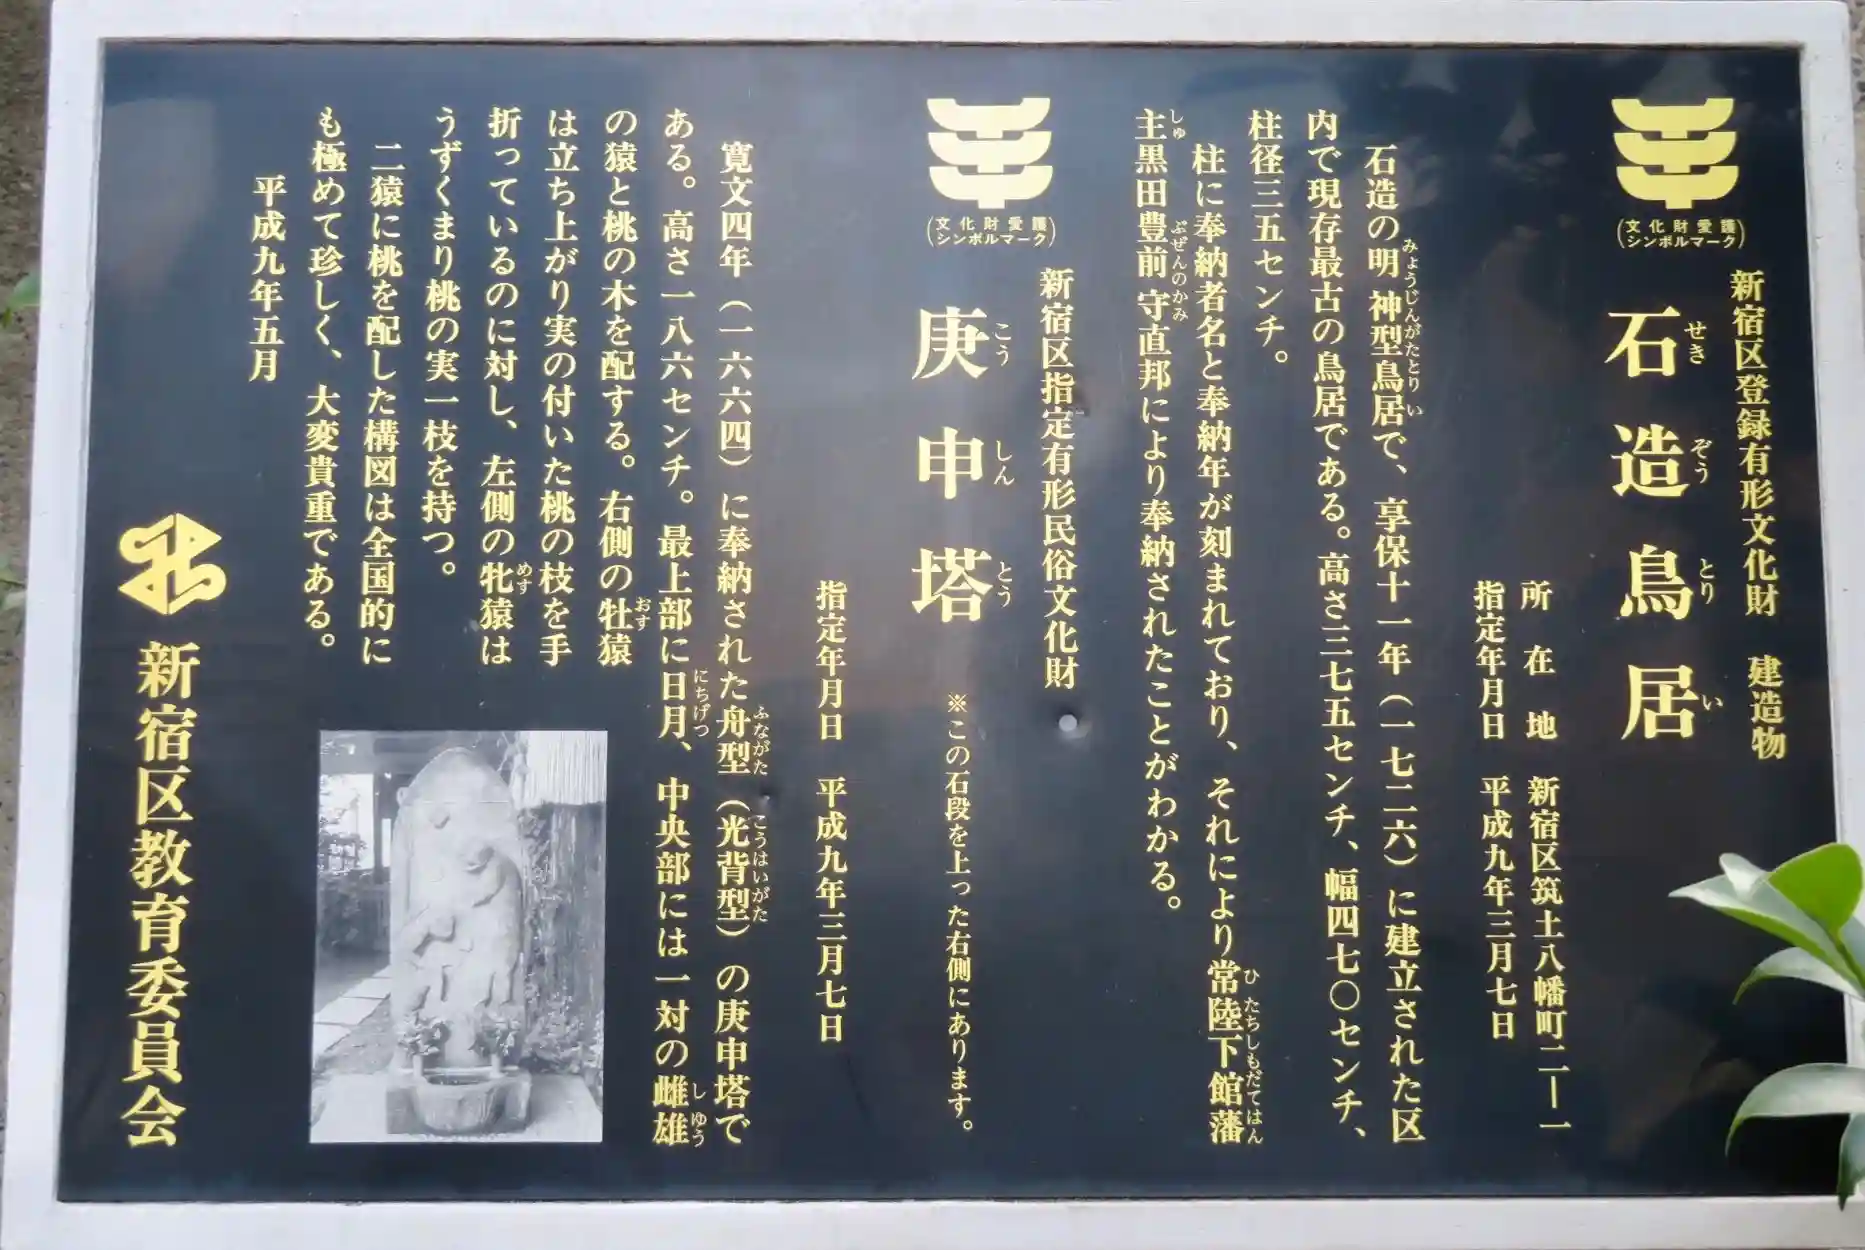 (文化財愛護
シンボルマーク)
新宿区登録有形文化財　建造物
石造鳥居
せきぞうとりい
所在地　新宿区筑土八幡町二―一
指定年月日　平成九年三月七日
石造の明神型鳥居で、享保十一年（一七二六）に建立された区
みょうじんがたとりい
内で現存最古の鳥居である。高さ三七五センチ、幅四七〇センチ、
柱径三五センチ。
柱に奉納者名と奉納年が刻まれており、それにより常陸下館藩
ひたちしもだてはん
主黒田豊前守直邦により奉納されたことがわかる。
しゅ　ぶぜんのかみ
(文化財愛護
シンボルマーク)
新宿区指定有形民俗文化財
庚申塔
こうしんとう
※この石段を上った右側にあります。
指定年月日　平成九年三月七日
寛文四年（一六六四）に奉納された舟型（光背型）の庚申塔で
ふながた　こうはいがた
ある。高さ一八六センチ。最上部に日月、中央部には一対の雌雄
にちげつ　しゆう
の猿と桃の木を配する。右側の牡猿
おす
は立ち上がり実の付いた桃の枝を手
折っているのに対し、左側の牝猿は
めす
うずくまり桃の実一枝を持つ。
二猿に桃を配した構図は全国的に
も極めて珍しく、大変貴重である。
平成九年五月
新宿区教育委員会